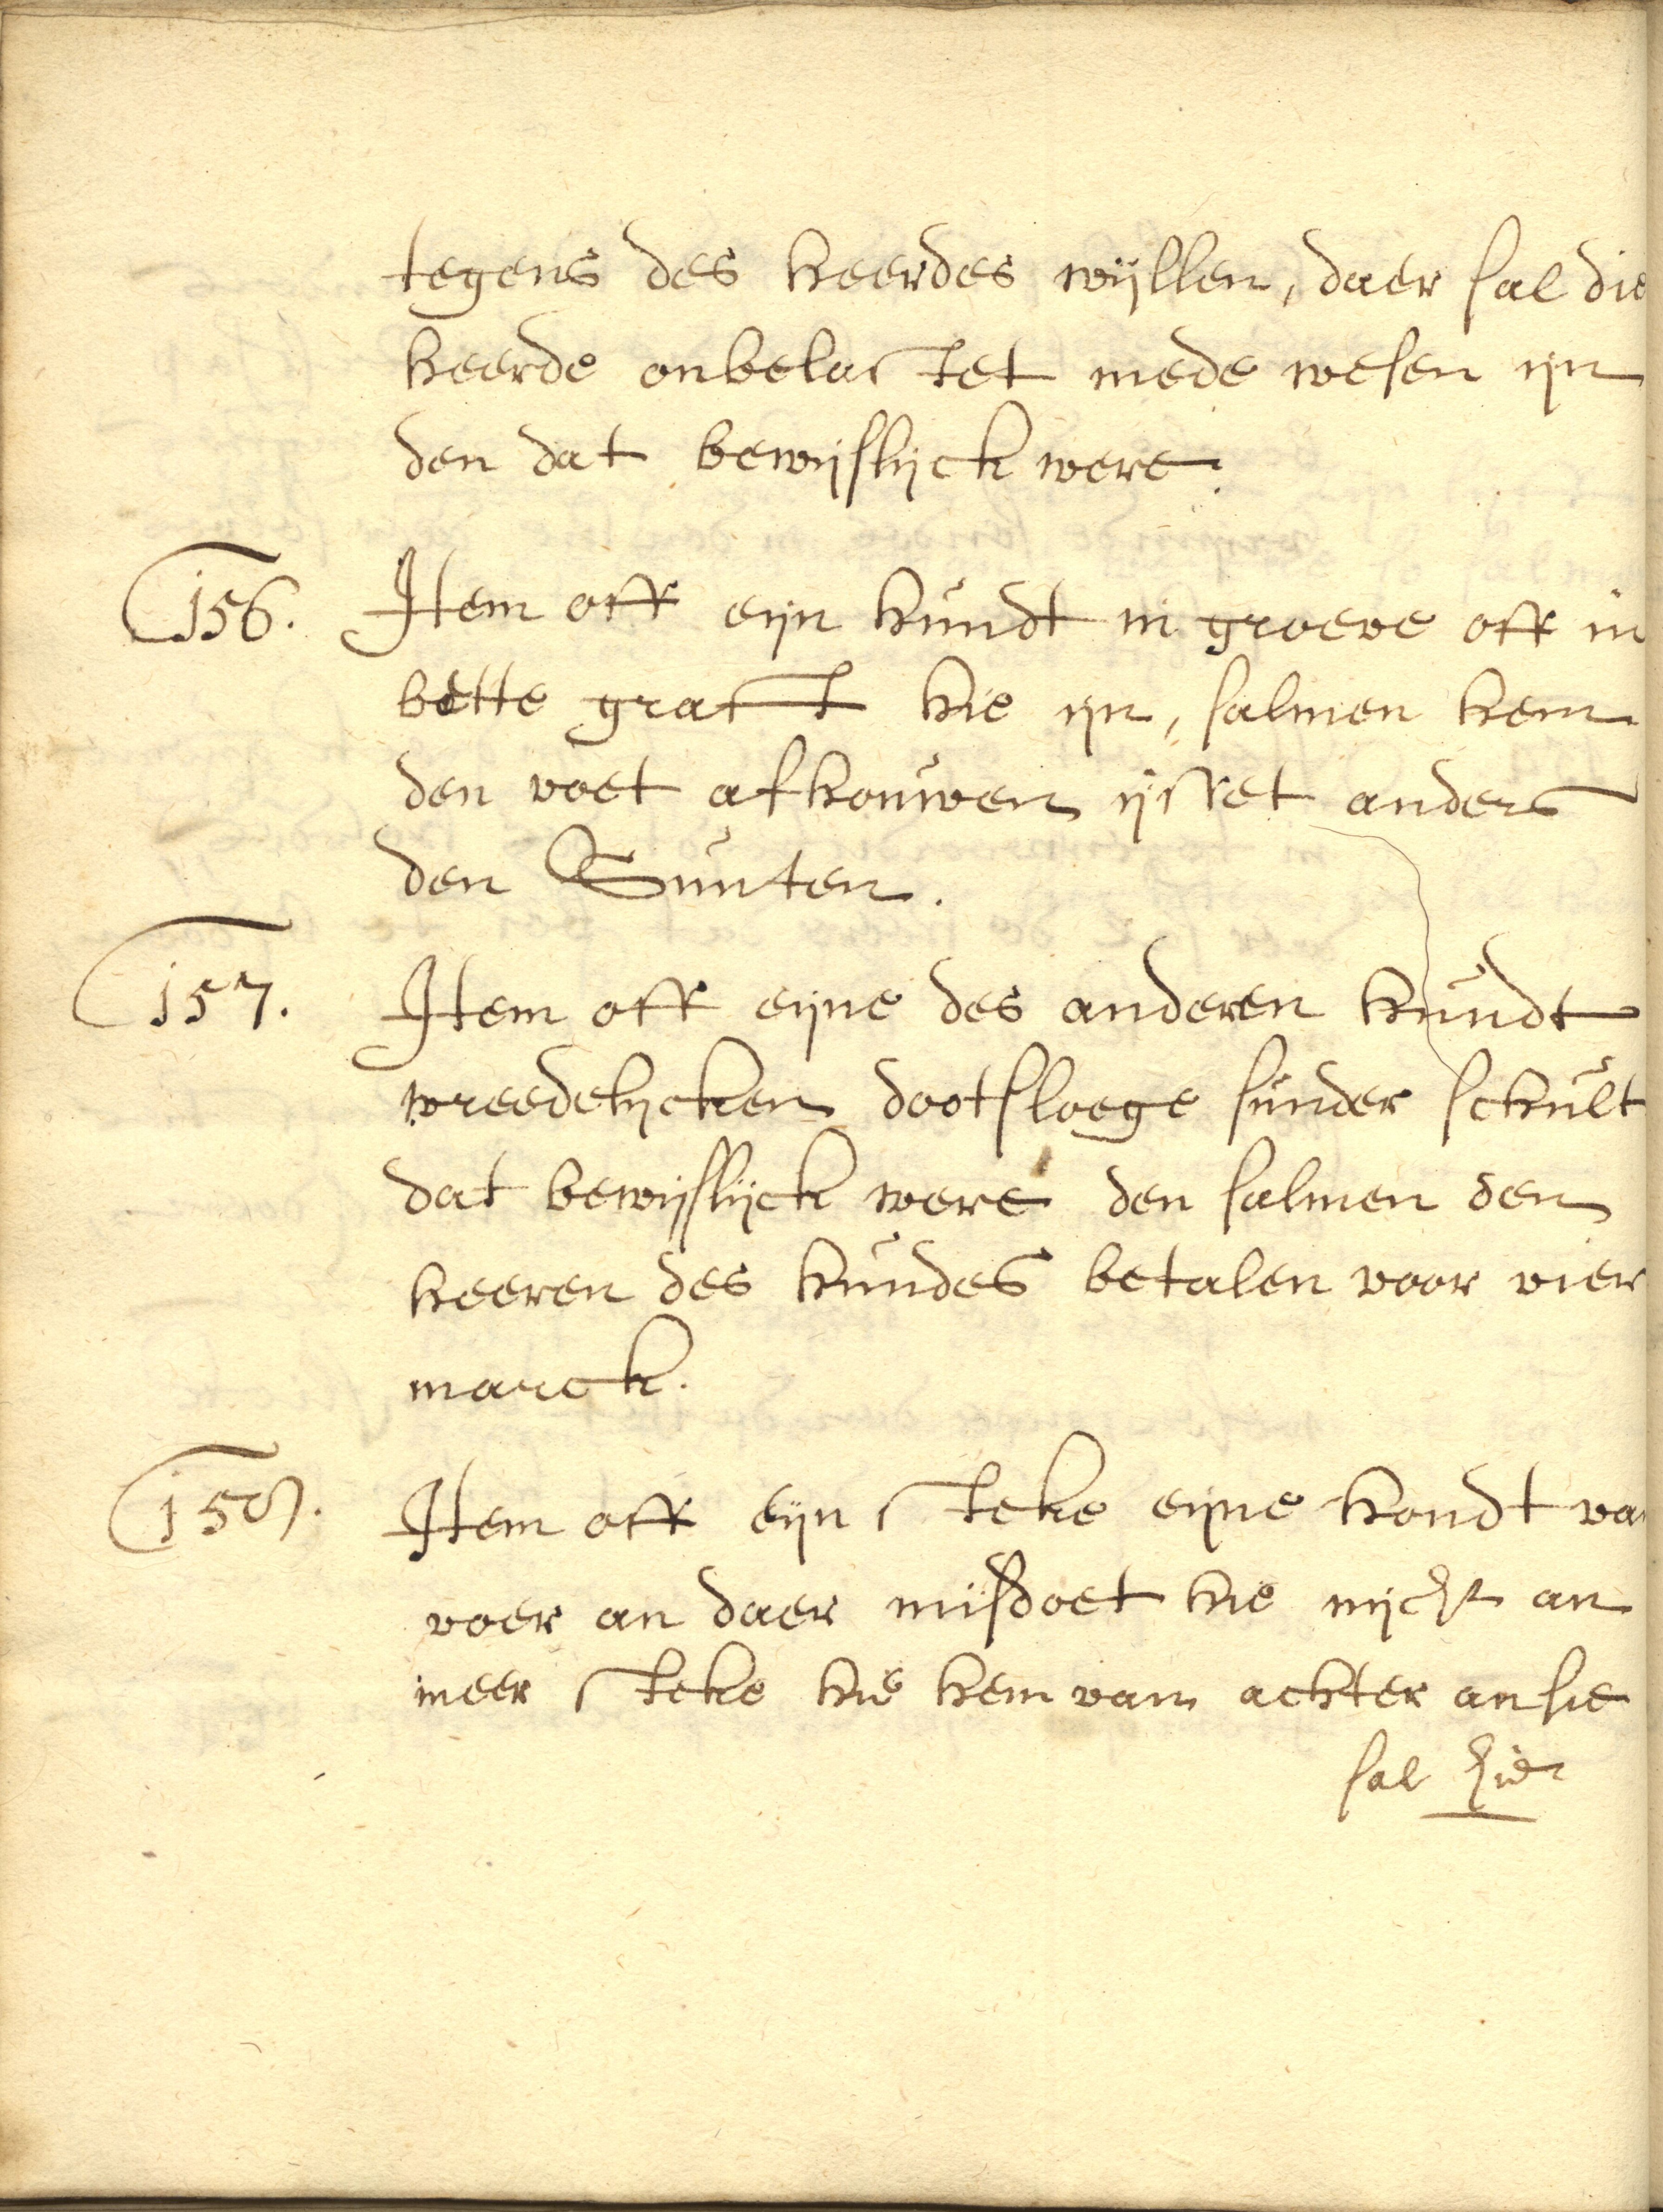 tegens des heerdes wijllen, daer sal die
heerde onbelastet mede wesen ijn
den dat bewijslijck were.
156. Item off eijn hundt in groeve off in
bette grast hie ijn, salmen hem
den voet afhouwen ijsset anders
den Sunten.
157. Item off eijne des anderen hundt
wreedelijcken dootsloege sunder schult
dat bewijslijck were den salmen den
heeren des hundes betalen voor vier
marck.
158. Item off eijn steke eijne hondt va
voer an daer misdoet hie nijcht an
meer steke hie hem van achter an sie
sal hie